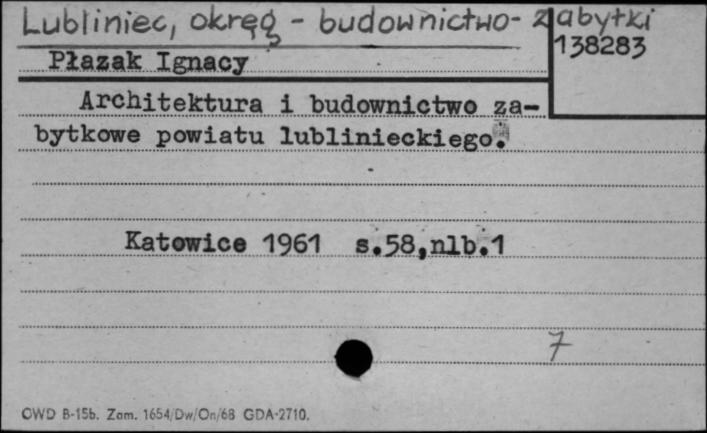 Lubliniec, okręg - budownictwo - zabytki
138283
Płazak Ignacy
Architektura i budownictwo za-
bytkowe powiatu lublinieckiego.
Katowice 1961 s.58,nlb.1
7
OWD B-15b. Zam. 1654/Dw/On/68 GDA-2710.